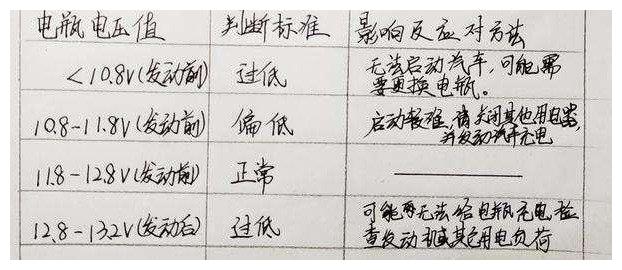 电瓶电压值 判断标准 影响反应对方法
<10.8V(发动前) 过低 无法启动汽车,可能需
要更换电瓶。
10.8-11.8V(发动前) 偏低 启动较难,请关闭其他用电器,
并发动汽车充电
11.8-12.8V(发动前) 正常
12.8-13.2V(发动后) 过低 可能无法给电瓶充电检
查发动机或其它用电负荷